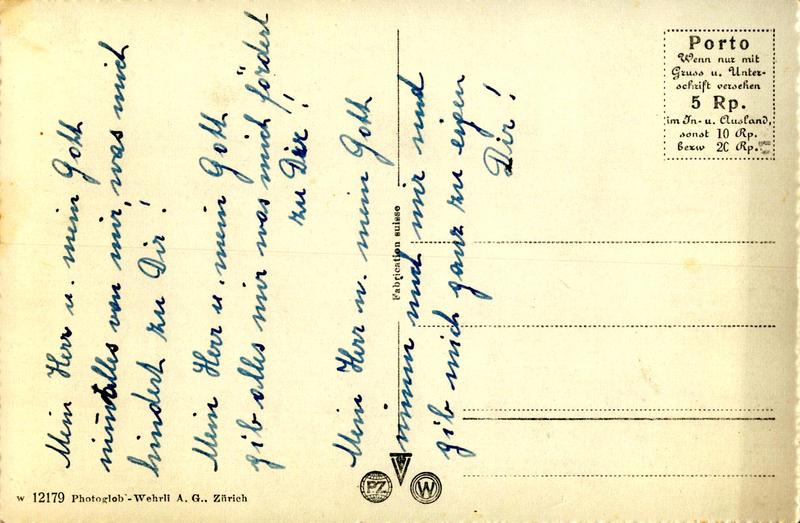 Mein Herr u. mein Gott
nimm alles von mir, was mich
hindert zu Dir!
Mein Herr u. mein Gott
gib alles mir was mich fördert
zu Dir!
Mein Herr u. mein Gott
nimm mich mir und
gib mich ganz zu eigen
Dir!
Fabrication suisse
Porto
Wenn nur mit
Gruss u. Unter-
schrift versehen
5 Rp.
im In- u. Ausland,
sonst 10 Rp.
bezw 20 Rp.
PZ W
W 12179 Photoglob-Wehrli A. G., Zürich